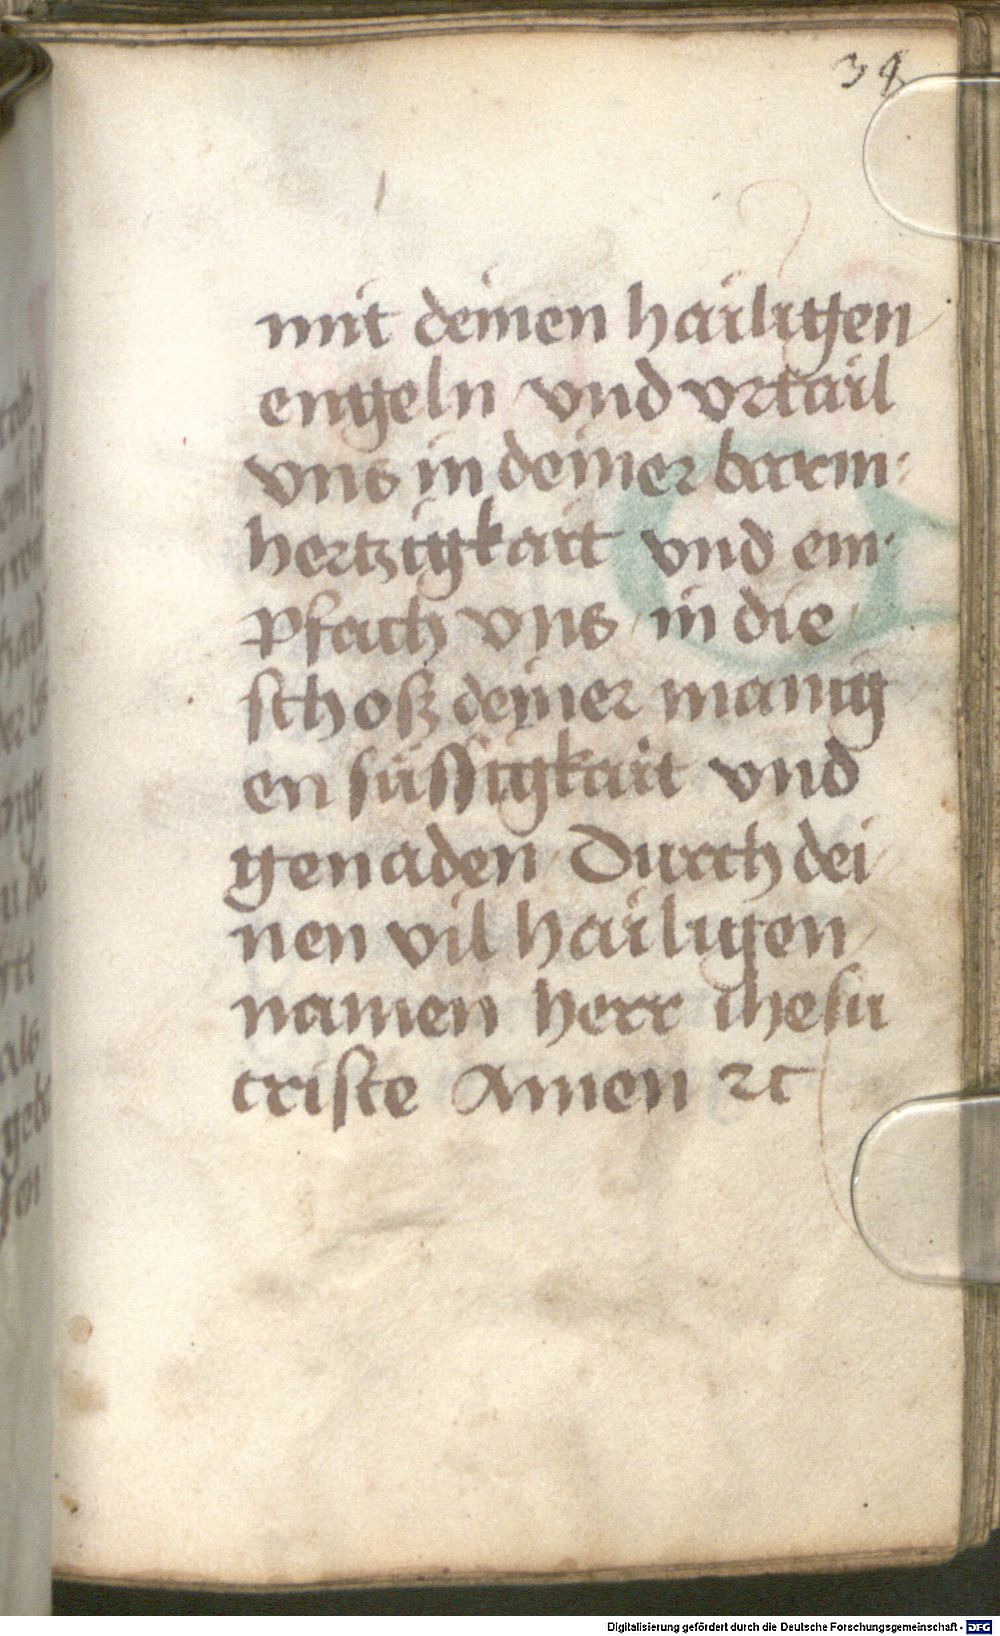 38
mit deinen hailigen
engeln vnd vrtail
vns in deiner barm
hertzigkait vnd em
pfach vns in die
schoß deiner manig
en süssigkait vnd
genaden Durch dei
nen vil hailigen
namen herr ihesu
criste Amen ꝛc
Digitalisierung gefördert durch die Deutsche Forschungsgemeinschaft - DFG